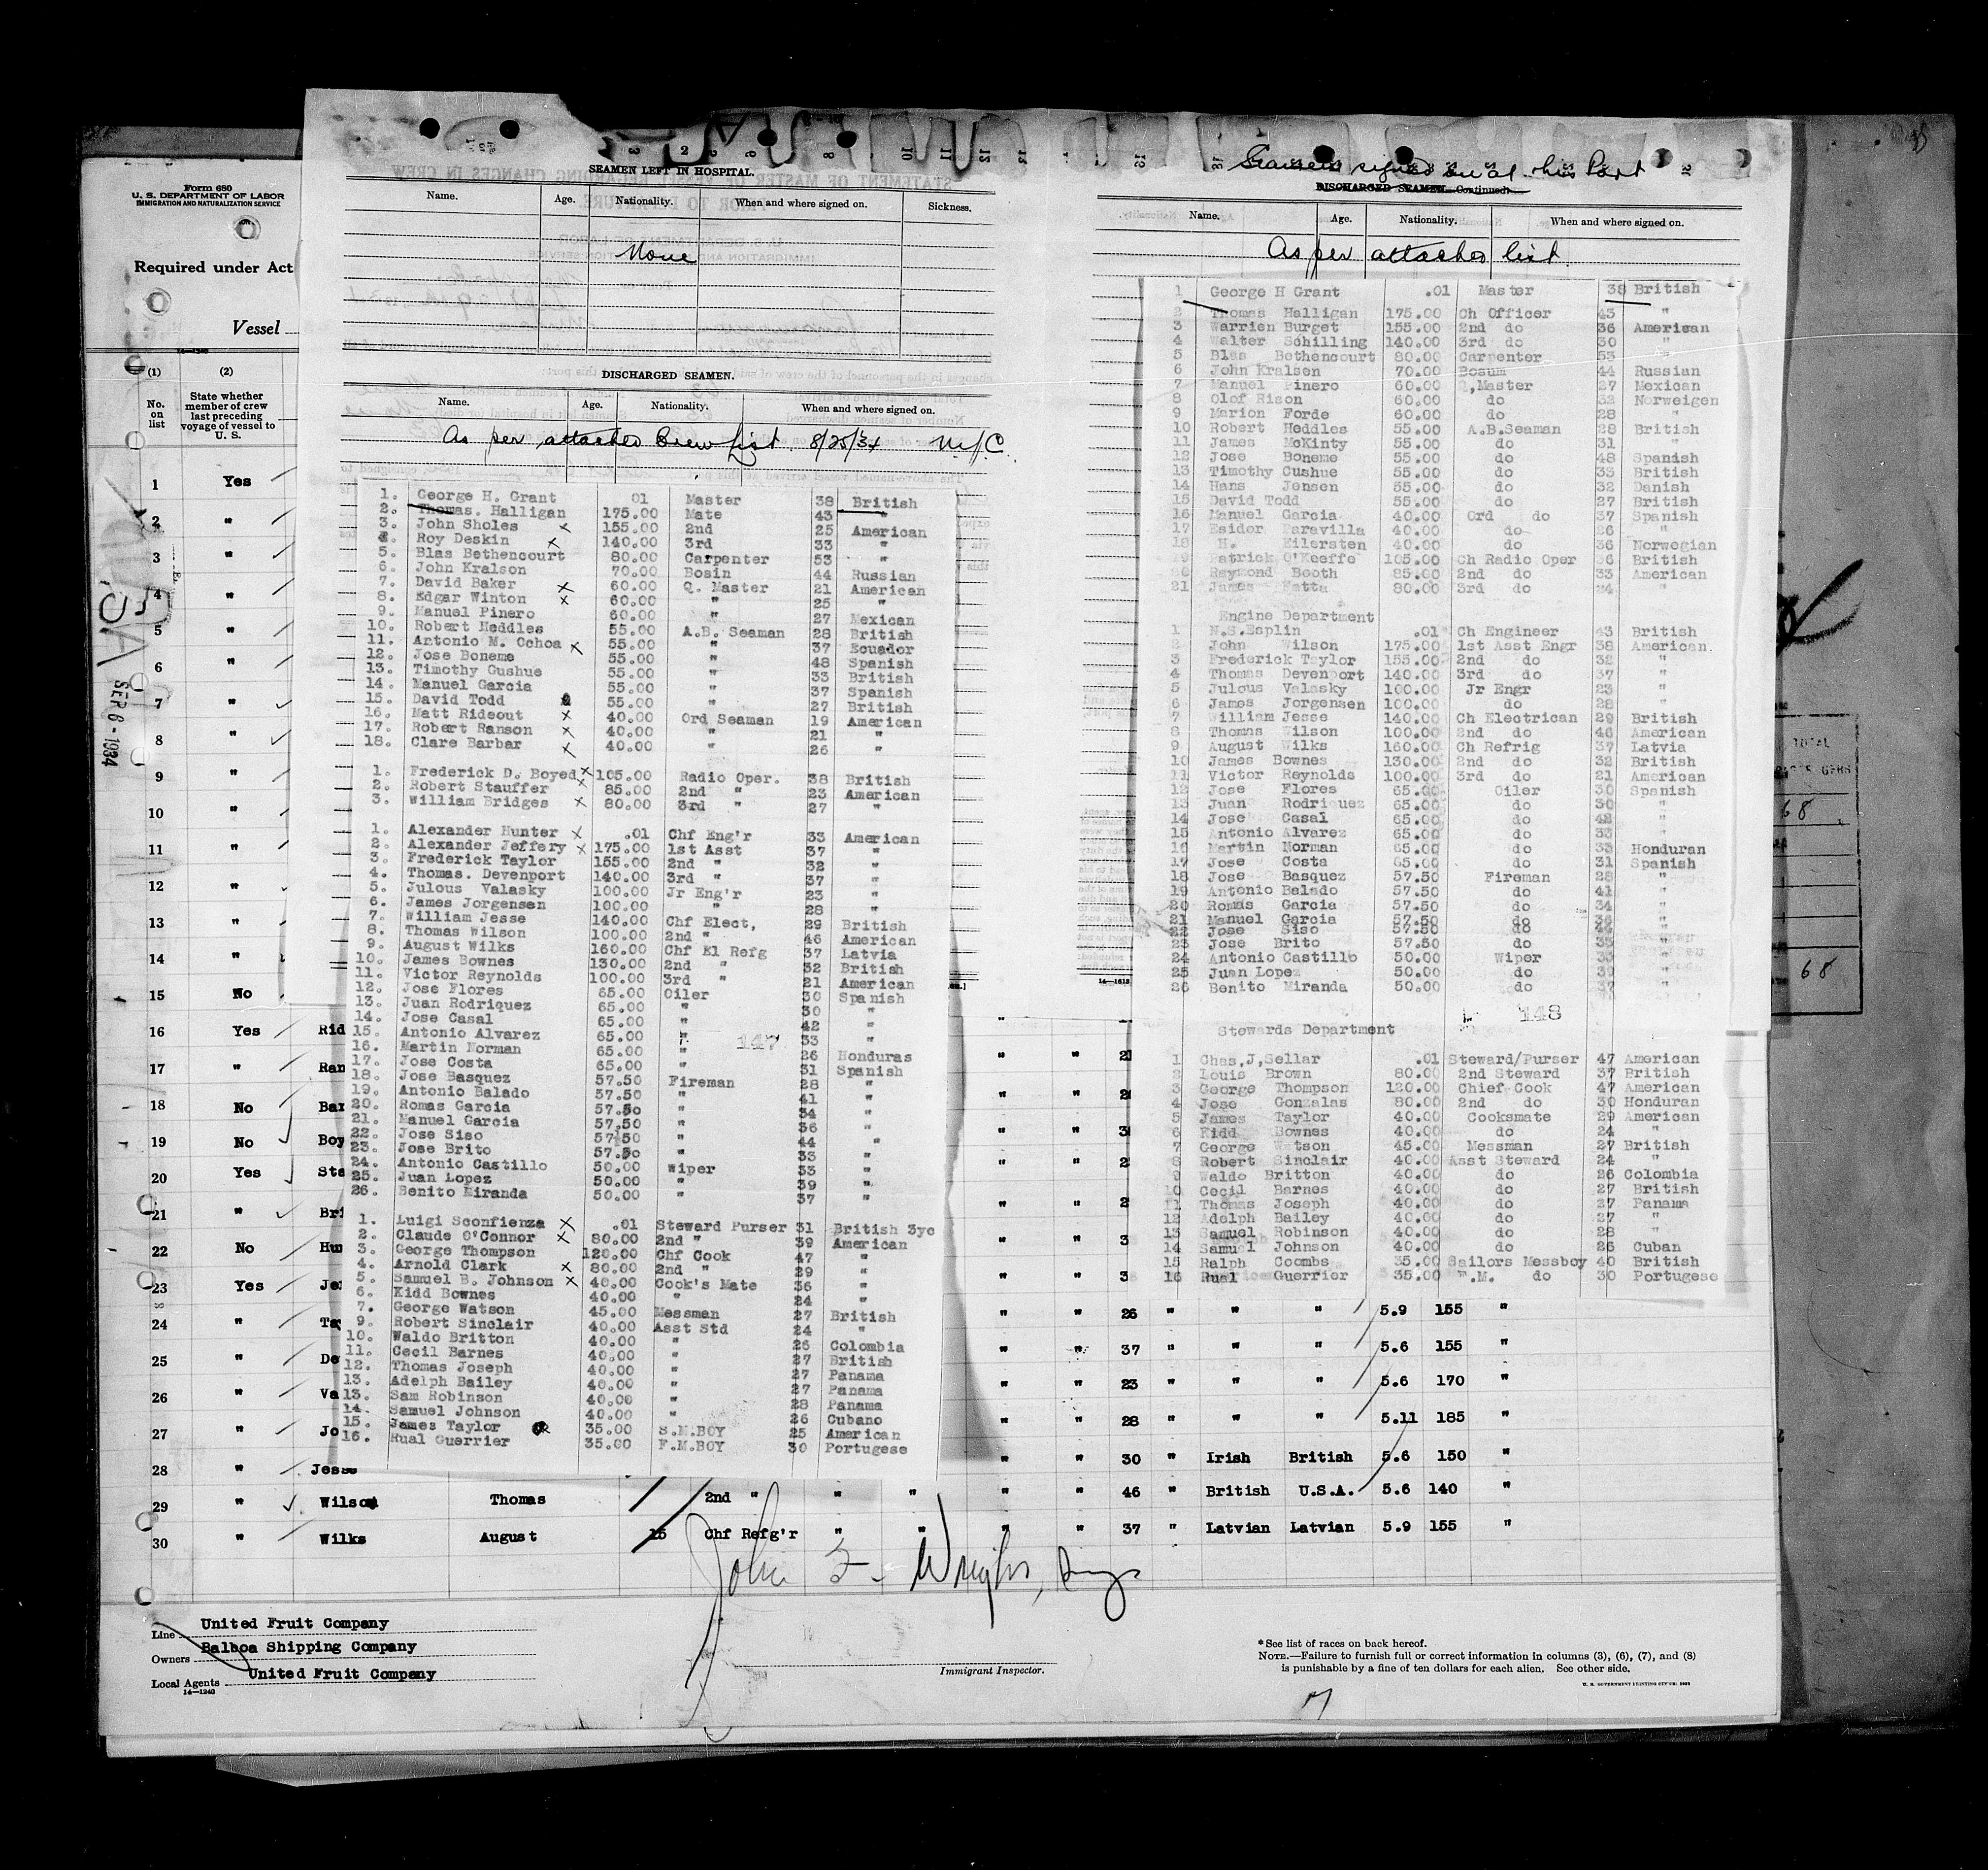 Form 680
U. S. DEPARTMENT OF LABOR
IMMIGRATION AND NATURALIZATION SERVICE
Required under Act
Vessel
(1) (2)
No. on list
State whether member of crew last preceding voyage of vessel to U. S.
SEP 6 - 1934
SEAMEN LEFT IN HOSPITAL.
Name. Age. Nationality. When and where signed on. Sickness.
None
DISCHARGED SEAMEN.
Name. Age. Nationality. When and where signed on.
As per attached Crew List 8/25/34 N.Y.C.
1. George H. Grant 01 Master 38 British
2. Thomas. Halligan 175.00 Mate 43 "
3. John Sholes x 155.00 2nd 25 American
4. Roy Deskin x 140.00 3rd 33 "
5. Blas Bethencourt 80.00 Carpenter 53 "
6. John Kralson 70.00 Bosin 44 Russian
7. David Baker x 60.00 Q. Master 21 American
8. Edgar Winton x 60.00 " 25 "
9. Manuel Pinero 60.00 " 27 Mexican
10. Robert Heddles 55.00 A.B. Seaman 28 British
11. Antonio M. Ochoa x 55.00 " 37 Ecuador
12. Jose Boneme 55.00 " 48 Spanish
13. Timothy Cushue 55.00 " 33 British
14. Manuel Garcia 55.00 " 37 Spanish
15. David Todd 55.00 " 27 British
16. Matt Rideout x 40.00 Ord Seaman 19 American
17. Robert Ranson x 40.00 " 21 "
18. Clare Barbar x 40.00 " 26 "
1. Frederick D. Boyed x 105.00 Radio Oper. 38 British
2. Robert Stauffer x 85.00 2nd " 23 American
3. William Bridges x 80.00 3rd " 27 "
1. Alexander Hunter x .01 Chf Eng'r 33 American
2. Alexander Jeffery x 175.00 1st Asst 37 "
3. Frederick Taylor 155.00 2nd " 32 "
4. Thomas. Devenport 140.00 3rd " 37 "
5. Julous Valasky 100.00 Jr Eng'r 23 "
6. James Jorgensen 100.00 " 28 "
7. William Jesse 140.00 Chf Elect, 29 British
8. Thomas Wilson 100.00 2nd " 46 American
9. August Wilks 160.00 Chf El Refg 37 Latvia
10. James Bownes 130.00 2nd " 32 British
11. Victor Reynolds 100.00 3rd " 21 American
12. Jose Flores 65.00 Oiler 30 Spanish
13. Juan Rodriquez 65.00 " 30 "
14. Jose Casal 65.00 " 42 "
15. Antonio Alvarez 65.00 " 33 "
147
16. Martin Norman 65.00 " 26 Honduras
17. Jose Costa 65.00 " 31 Spanish
18. Jose Basquez 57.50 Fireman 28 "
19. Antonio Balado 57.50 " 41 "
20. Romas Garcia 57.50 " 34 "
21. Manuel Garcia 57.50 " 36 "
22. Jose Siso 57.50 " 44 "
23. Jose Brito 57.50 " 33 "
24. Antonio Castillo 50.00 Wiper 33 "
25. Juan Lopez 50.00 " 39 "
26. Benito Miranda 50.00 " 37 "
1. Luigi Sconfienza x .01 Steward Purser 31 British 3yc
2. Claude O'Connor x 80.00 2nd " 39 American
3. George Thompson 120.00 Chf Cook 47 "
4. Arnold Clark x 80.00 2nd " 29 "
5. Samuel B. Johnson x 40.00 Cook's Mate 36 "
6. Kidd Bownes 40.00 " 24 "
7. George Watson 45.00 Messman 27 British
9. Robert Sinclair 40.00 Asst Std 24 "
10. Waldo Britton 40.00 " 26 Colombia
11. Cecil Barnes 40.00 " 27 British
12. Thomas Joseph 40.00 " 27 Panama
13. Adelph Bailey 40.00 " 27 Panama
13. Sam Robinson 40.00 " 28 Panama
14. Samuel Johnson 40.00 " 26 Cubano
15. James Taylor 35.00 S.M.BOY 25 American
16. Rual Guerrier 35.00 F.M.BOY 30 Portugese
Seamen signed on at this Port
DISCHARGED SEAMEN—Continued.
Name. Age. Nationality. When and where signed on.
As per attached list
1 George H Grant .01 Master 38 British
2 Thomas Halligan 175.00 Ch Officer 43 "
3 Warrien Burget 155.00 2nd do 36 American
4 Walter Schilling 140.00 3rd do 30 "
5 Blas Bethencourt 80.00 Carpenter 53 "
6 John Kralsen 70.00 Bosum 44 Russian
7 Manuel Pinero 60.00 Q,Master 27 Mexican
8 Olof Rison 60.00 do 32 Norweigen
9 Marion Forde 60.00 do 28 "
10 Robert Heddles 55.00 A.B.Seaman 28 British
11 James McKinty 55.00 do 31 "
12 Jose Boneme 55.00 do 48 Spanish
13 Timothy Cushue 55.00 do 33 British
14 Hans Jensen 55.00 do 32 Danish
15 David Todd 55.00 do 27 British
16 Manuel Garcia 40.00 Ord do 37 Spanish
17 Esidor Paravilla 40.00 do 26 "
18 H. Eilersten 40.00 do 36 Norwegian
19 Patrick O'Keeffe 105.00 Ch Radio Oper 36 British
20 Raymond Booth 85.00 2nd do 33 American
21 James Hatta 80.00 3rd do 24 "
Engine Department
1 N.S.Esplin .01 Ch Engineer 43 British
2 John Wilson 175.00 1st Asst Engr 38 American.
3 Frederick Taylor 155.00 2nd do 32 "
4 Thomas Devenport 140.00 3rd do 37 "
5 Julous Valasky 100.00 Jr Engr 23 "
6 James Jorgensen 100.00 do 28 "
7 William Jesse 140.00 Ch Electrican 29 British
8 Thomas Wilson 100.00 2nd do 46 American
9 August Wilks 160.00 Ch Refrig 37 Latvia
10 James Bownes 130.00 2nd do 32 British
11 Victor Reynolds 100.00 3rd do 21 American
12 Jose Flores 65.00 Oiler 30 Spanish
13 Juan Rodriquez 65.00 do 30 "
14 Jose Casal 65.00 do 42 "
15 Antonio Alvarez 65.00 do 33 "
16 Martin Norman 65.00 do 33 Honduran
17 Jose Costa 65.00 do 31 Spanish
18 Jose Basquez 57.50 Fireman 28 "
19 Antonio Balado 57.50 do 41 "
20 Romas Garcia 57.50 do 34 "
21 Manuel Garcia 57.50 do 36 "
22 Jose Siso 57.50 do 44 "
23 Jose Brito 57.50 do 33 "
24 Antonio Castillo 50.00 Wiper 33 "
25 Juan Lopez 50.00 do 39 "
26 Benito Miranda 50.00 do 37 "
148
Stewards Department
1 Chas,J,Sellar .01 Steward/Purser 47 American
2 Louis Brown 80.00 2nd Steward 37 British
3 George Thompson 120.00 Chief Cook 47 American
4 Jose Gonzalas 80.00 2nd do 30 Honduran
5 James Taylor 40.00 Cooksmate 29 American
6 Kidd Bownes 40.00 do 24 "
7 George Watson 45.00 Messman 27 British
8 Robert Sinclair 40.00 Asst Steward 24 "
9 Waldo Britton 40.00 do 26 Colombia
10 Cecil Barnes 40.00 do 27 British
11 Thomas Joseph 40.00 do 27 Panama
12 Adelph Bailey 40.00 do 27 "
13 Samuel Robinson 40.00 do 28 "
14 Samuel Johnson 40.00 do 26 Cuban
15 Ralph Coombs 35.00 Sailors Messboy 40 British
16 Rual Guerrier 35.00 F.M. do 30 Portugese
TOTAL
68
68
1 Yes
2 "
3 "
4 "
5 "
6 "
7 "
8 "
9 "
10 "
11 "
12 "
13 "
14 "
15 No
16 Yes Rid
17 " Ran
18 No Bar
19 No Boy
20 Yes Sta
21 " Bri
22 No Hun
23 Yes Jef
24 " Tay 26 " " " 5.9 155 "
25 " De 37 " " " 5.6 155 "
26 " Va 23 " " " 5.6 170 "
27 " Jo 28 " " " 5.11 185 "
28 " Jesse " " 30 " Irish British 5.6 150 "
29 " Wilson Thomas 2nd " " " " " 46 " British U.S.A. 5.6 140 "
30 " Wilks August 15 Chf Refg'r " " " " 37 " Latvian Latvian 5.9 155 "
Line United Fruit Company
Owners Balboa Shipping Company
Local Agents United Fruit Company
14—1240
Immigrant Inspector.
* See list of races on back hereof.
NOTE.—Failure to furnish full or correct information in columns (3), (6), (7), and (8)
is punishable by a fine of ten dollars for each alien. See other side.